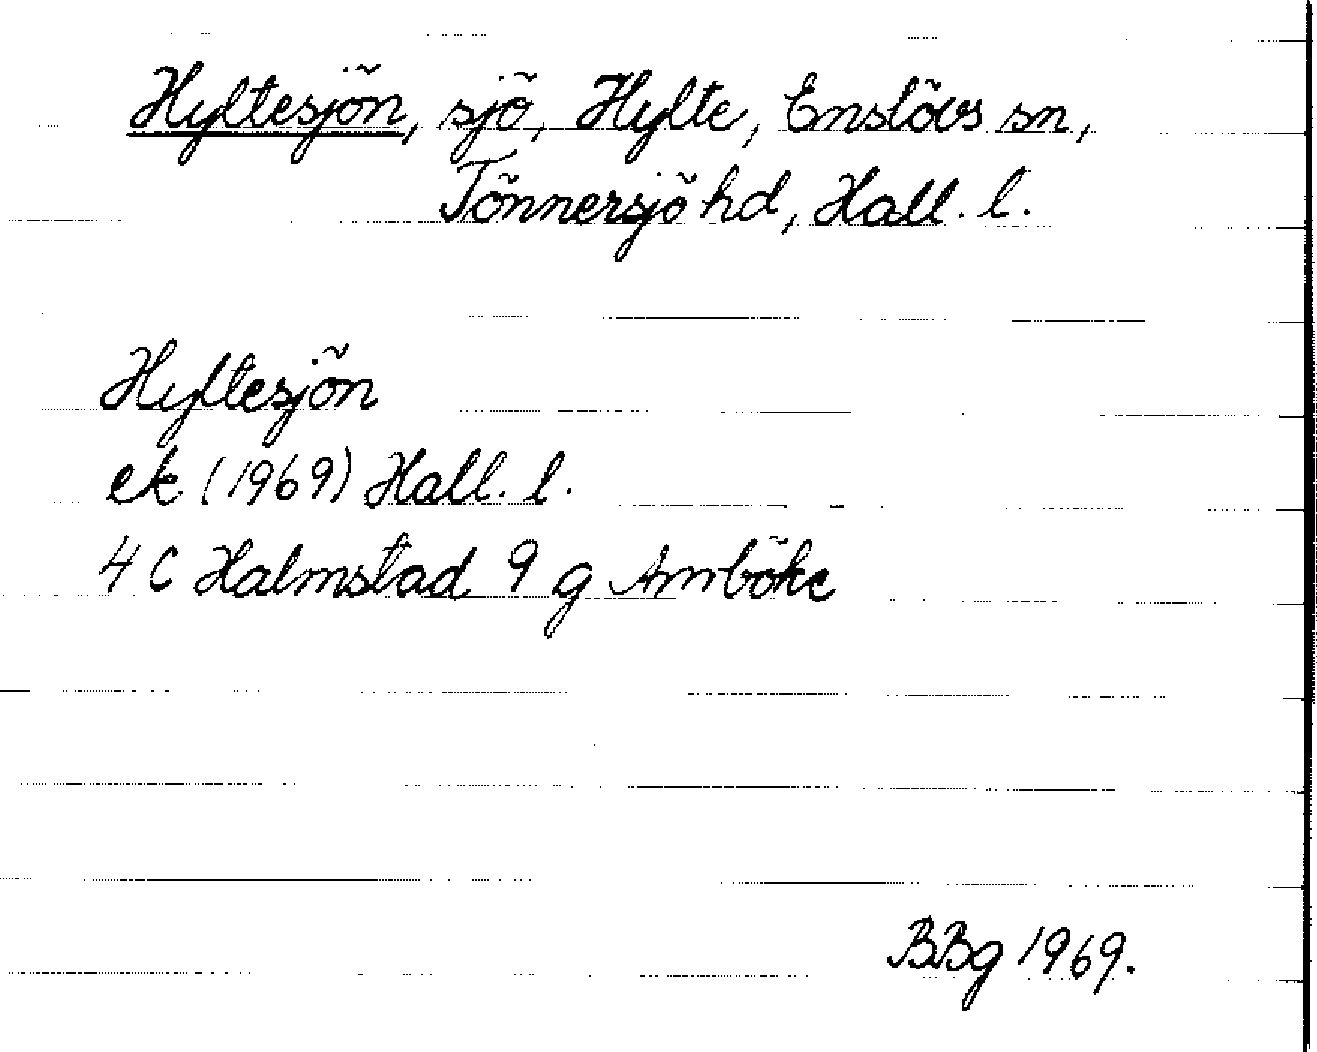 Hyltesjön, sjö, Hylte, Enslövs sn,
Tönnersjö hd, Hall. l.
Hyltesjön
ek (1969) Hall. l.
4 C Halmstad 9 g Amböke
BBg 1969.